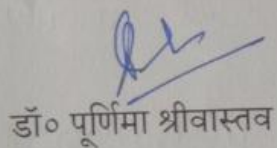 डॉ० पूर्णिमा श्रीवास्तव